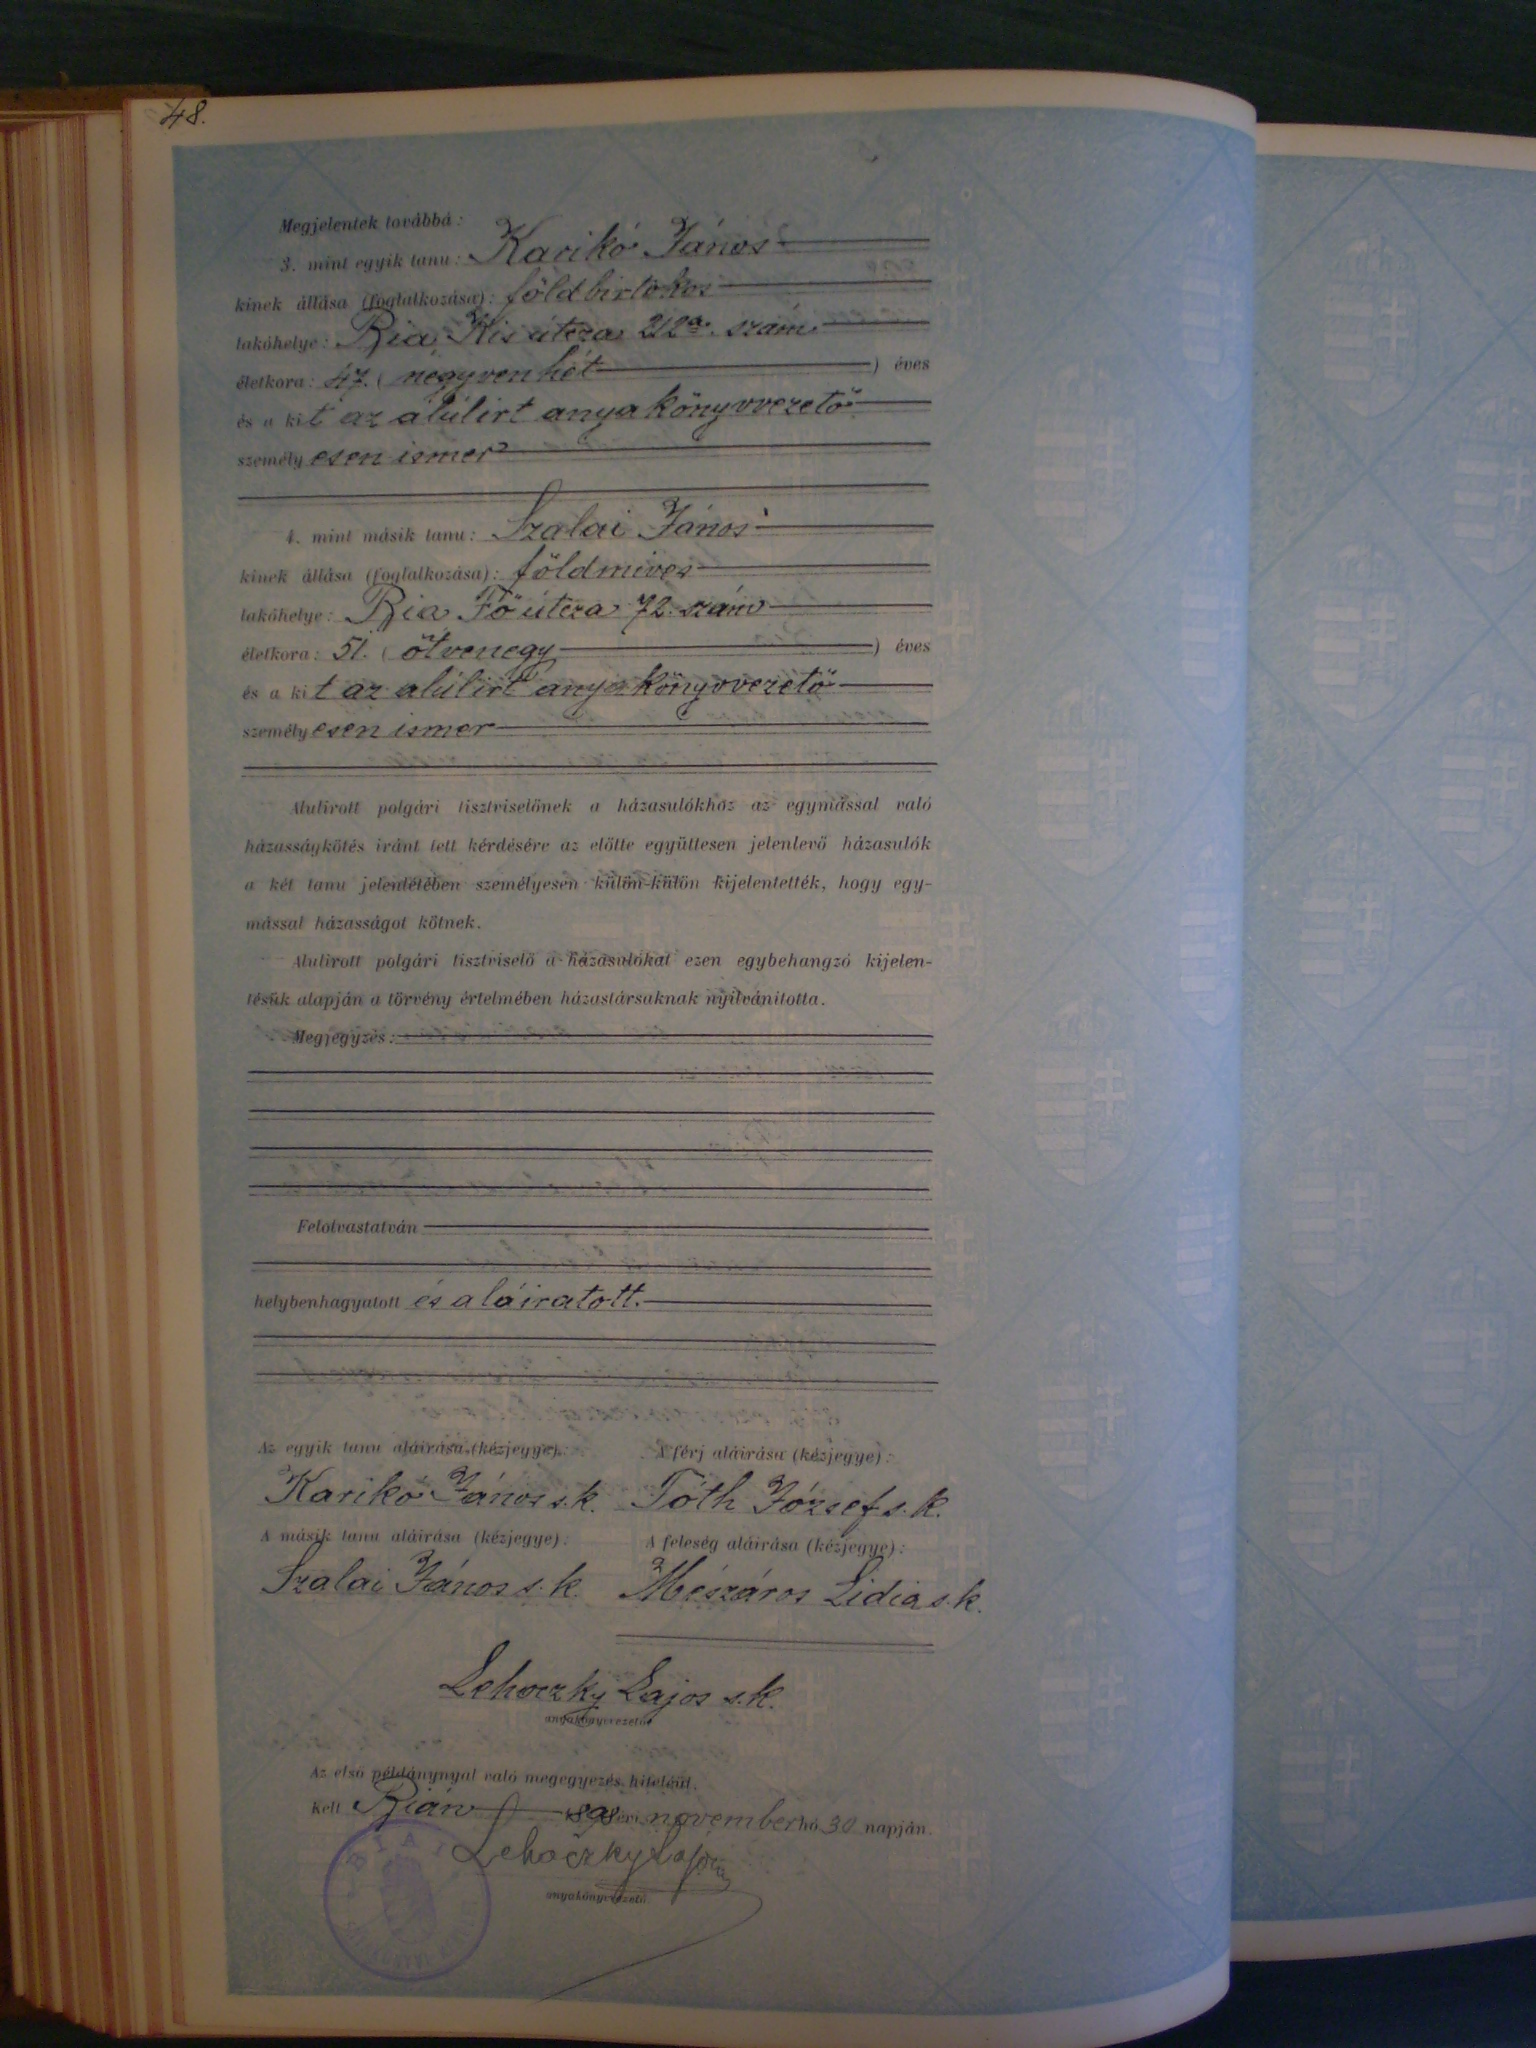 48.
Megjelentek továbbá:
3. mint egyik tanu: Karikó János
kinek állása (foglalkozása): földbirtokos
lakóhelye: Bia Kis útcza 212a. szám
életkora: 47. (negyvenhét) éves
és a kit az alúlirt anyakönyvvezető
személyesen ismer
4. mint másik tanu: Szalai János
kinek állása (foglalkozása): földmives
lakóhelye: Bia Fő útcza 72. szám
életkora: 51. (ötvenegy) éves
és a kit az alúlirt anyakönyvvezető
személyesen ismer
Alulirott polgári tisztviselőnek a házasulókhoz az egymással való
házasságkötés iránt tett kérdésére az előtte együttesen jelenlevő házasulók
a két tanu jelenlétében személyesen külön-külön kijelentették, hogy egy-
mással házasságot kötnek.
Alulirott polgári tisztviselő a házasulókat ezen egybehangzó kijelen-
tésük alapján a törvény értelmében házastársaknak nyilvánitotta.
Megjegyzés:
Felolvastatván
helybenhagyatott és aláiratott.
Az egyik tanu aláirása (kézjegye): A férj aláirása (kézjegye):
Karikó János s.k. Tóth József s.k.
A másik tanu aláirása (kézjegye): A feleség aláirása (kézjegye):
Szalai János s.k. Mészáros Lidia s.k.
Lehoczky Lajos s.k.
anyakönyvvezető
Az első példánynyal való megegyezés hiteléül.
Kelt Bián 1898 évi november hó 30 napján.
Lehoczky Lajos
anyakönyvvezető
BIAI